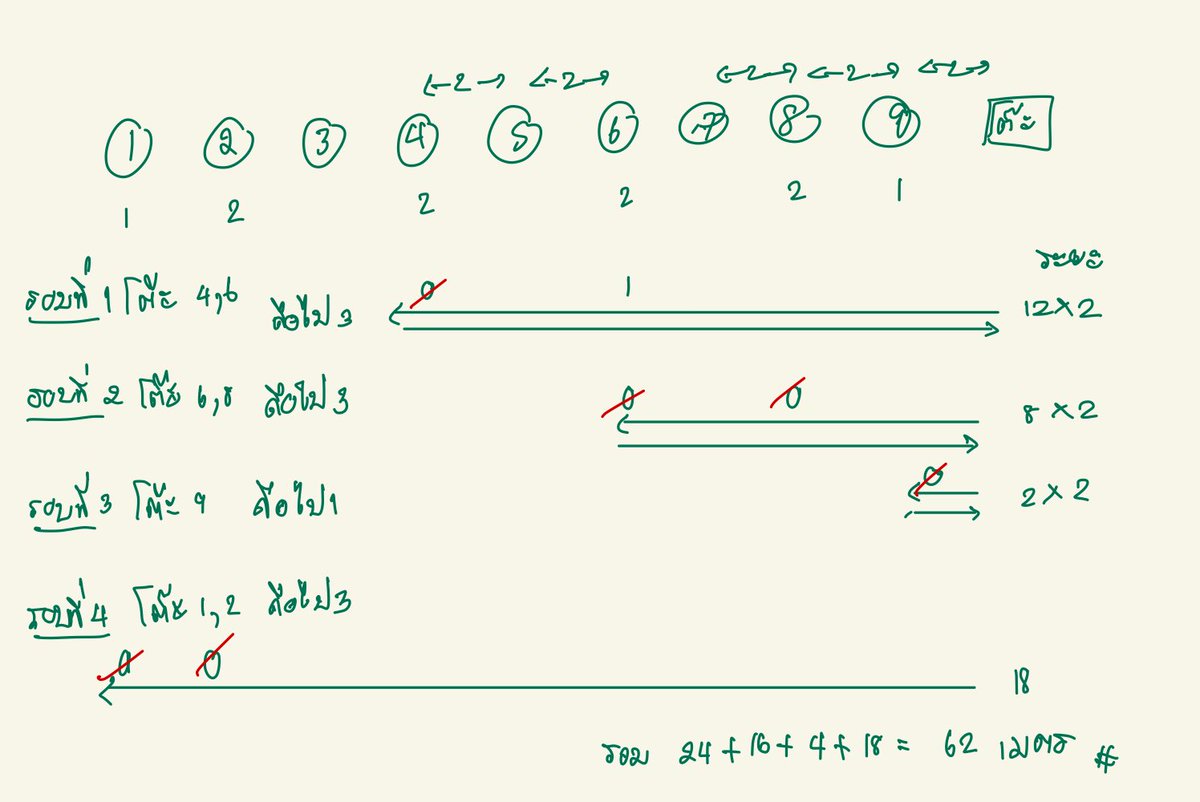 ←2→ ←2→ ←2→ ←2→ ←2→
1 2 3 4 5 6 7 8 9 โต๊ะ
1 2 2 2 2 1
ระยะ
รอบที่ 1 โต๊ะ 4,6 ถือไป 3 0 1 12×2
รอบที่ 2 โต๊ะ 6,8 ถือไป 3 0 0 8×2
รอบที่ 3 โต๊ะ 9 ถือไป 1 0 2×2
รอบที่ 4 โต๊ะ 1,2 ถือไป 3
0 0 18
รวม 24+16+4+18 = 62 เมตร #